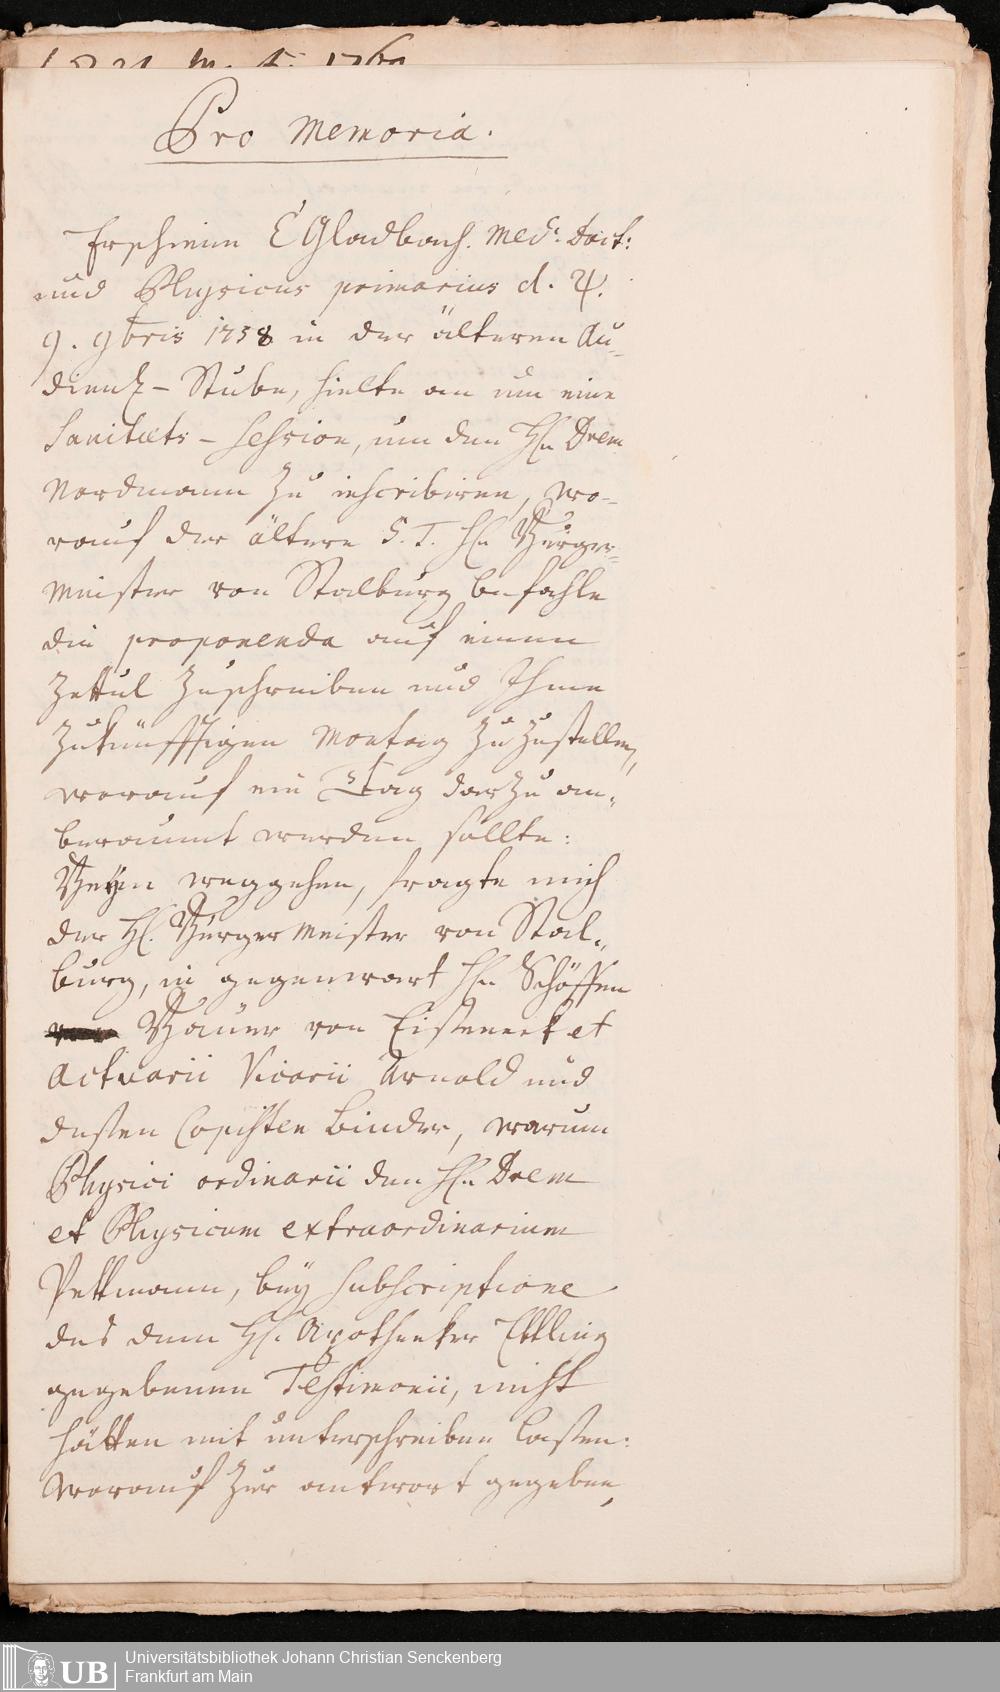 Pro Memoria.
Erschiene E Gladbach. Med: Doct:
und Physicus primarius d. ♃.
9. 9bris 1758 in der älteren Au-
dientz-Stube, hielte an um eine
Sanitæts-Session, um den Hn Drem
Nordmann zu inscribiren, wo-
rauf der ältere S. T. Hn Bürger-
meister von Stalburg befahle
die proponenda auf einen
Zettul zuschreiben und Ihme
zukünfftigen Montag zu zustellen,
worauf ein Tag darzu an-
beraumt werden sollte:
Beym weggehen, fragte mich
der Hl. Bürgermeister von Stal-
burg, in gegenwart Hn Schöffen
Bauer von Eiseneck et
Actuarii Vicarii Arnold und
dessen Copisten Binder, warum
Physici ordinarii den Hn Drem
et Physicum extraordinarium
Pettmann, bey subscriptione
des dem Hl. Apotheeker Ettling
gegebenen Testimonii, nicht
hätten mit unterschreiben lassen:
Worauf zur antwort gegeben,
Universitätsbibliothek Johann Christian Senckenberg
Frankfurt am Main
UB